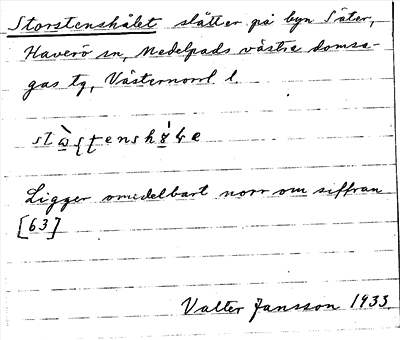 Storstenshålet slåtter på byn Säter,
Haverö sn, Medelpads västra domsa-
gas tg, Västernorrl l.
Ligger omedelbart norr om siffran
[63]
Valter Jansson 1933.